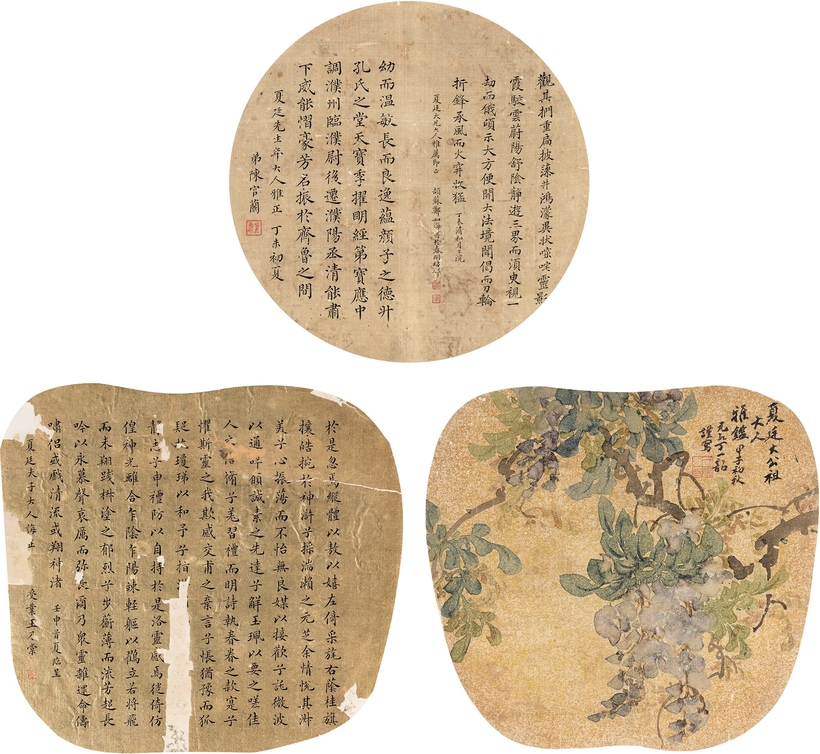 觀其捫重扃披井鴻濛異狀靈影
霞駮雲蔚陽舒陰靜遊三界而須臾視一
劫而俄頃示大方便開大法境開偈而刀輪
折鋒承風而火穽收猛 丁未清和月上浣
夏廷大兄大人雅屬即正
幼而温敏長而良逸蘊顏子之德升
孔氏之堂天寶季擢明經第寶應中
調濮州臨濮尉後遷濮陽丞清能肅
下威能慴豪芳名振於齊魯之間
夏廷先生年大人雅正 丁未初夏
弟陳官蘭
於是忽焉縱體以敖以嬉左倚采旄右蔭桂旗
攘皓捥於神滸兮採湍瀨之元芝余情悅其淑
美兮心振蕩而不怡無良媒以接歡兮託微波
以通辭願誠素之先達兮解玉珮以要之嗟佳
人之信脩兮羌習禮而明詩執眷眷之款寔兮
懼斯靈之我欺感交甫之棄言兮悵猶豫而狐
疑瓊珶以和予兮指
靜志兮申禮防以自持於是洛靈感焉徙倚仿
偟神光離合乍陰乍陽竦輕軀以鶴立若將飛
而未翔踐椒塗之郁烈兮步蘅薄而流芳超長
吟以永慕聲哀厲而彌長爾乃衆靈雜遝命儔
嘯侶或戲清流或翔神渚 壬申首夏臨呈
夏廷夫子大人誨正 受業王乃棠
夏廷大公祖
大人
雅鑑 甲子初秋
謹寫